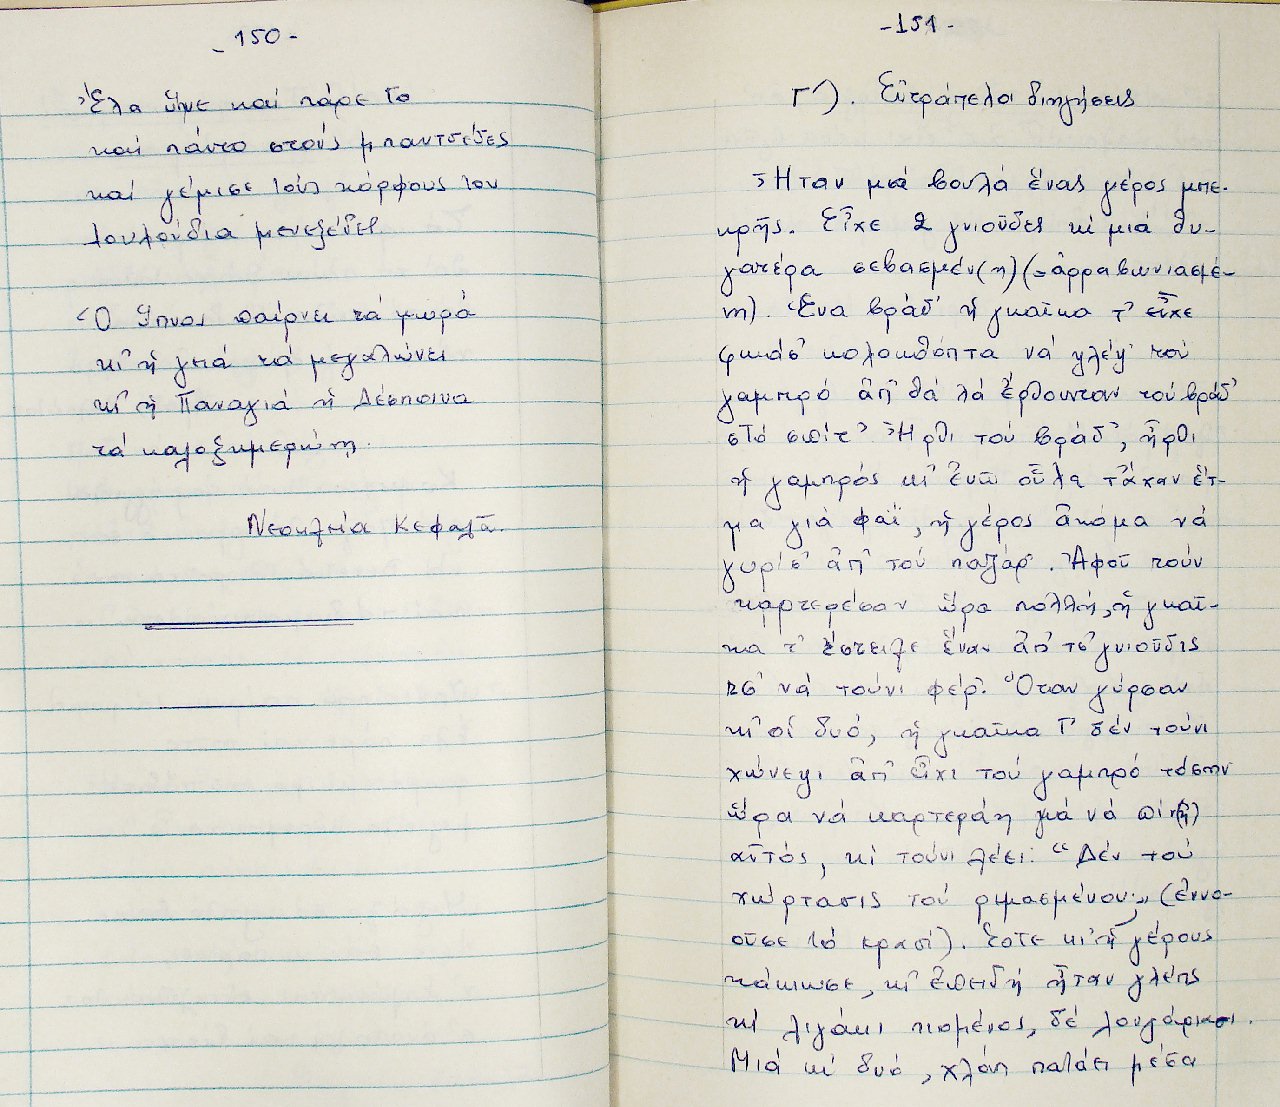 - 150 -
Ἔλα ὕπνε καί πάρε το
καί πάντο στούς μπαντσέδες
καί γέμισε τούς κόρφους του
λουλούδια μενεξέδες.
Ὁ ὕπνος παίρνει τά μωρά
κι' ἡ γειά τά μεγαλώνει
κι' ἡ Παναγιά ἡ Δέσποινα
τά καλοξημερώνει.
Νεοκλεία Κεφαλᾶ.
- 151 -
Γ'). Εὐτράπελοι διηγήσεις
Ἦταν μιά βουλά ἕνας γέρος μπε-
κρῆς. Εἶχε 2 γνιοῦδες κί μιά θυ-
γατέρα σεβασμέν(η) (=ἀρραβωνιασμέ-
νη). Ἕνα βράδ' ἡ γκαῖκα τ' εἶχε
φκιάσ' κολοκθόπτα νά φλέψ' τού
γαμπρό ἀπ' θά λά ἔρθουνταν τού βράδ'
στό σπίτ' Ἦρθι τού βράδ', ἦρθι
ἡ γαμπρός κι' ἐνῶ οὗλα τἄχαν ἕτ-
μα γιά φαΐ, ἡ γέρος ἀκόμα νά
γυρίσ' ἀπ' τού παζάρ'. Ἀφοῦ τούν
καρτερέσαν ὥρα πολλή, ἡ γκαῖ-
κα τ' ἔστειλε ἕναν ἀπ' τσ' γνιοῦδις
τσ' νά τούνι φέρ'. Ὅταν γύρσαν
κι' οἱ δυό, ἡ γκαῖκα τ' δέν τούνι
χώνεψι ἀπ' εἶχι τού γαμπρό τόσην
ὥρα νά καρτεράῃ γιά νά πίν(η)
αὐτός, κί τούνι λέει: "Δέν τού
χώρτασις τού ριμασμένου;" (ἐννο-
οῦσε τό κρασί). Τότε κι' ἡ γέρους
κάκιωσε, κι' ἐπειδή ἦταν γλέπς
κί λιγάκι πιομένος, δέ λουγάριασι.
Μιά κί δυό, χλάπ πατάει μέσα